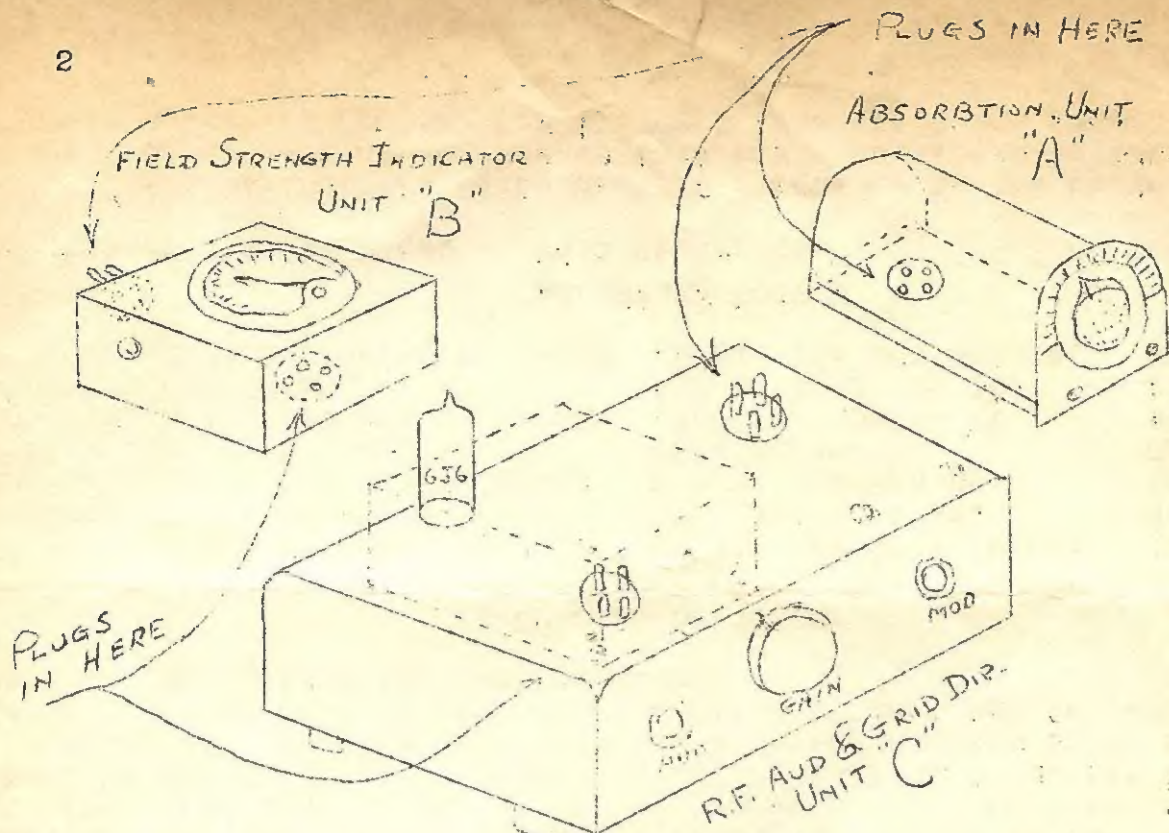 2
PLUGS IN HERE
ABSORBTION UNIT
"A"
FIELD STRENGTH INDICATOR
UNIT "B"
6J6
PLUGS
IN HERE
MOD
GAIN
R.F. AUD & GRID DIP.
UNIT "C"